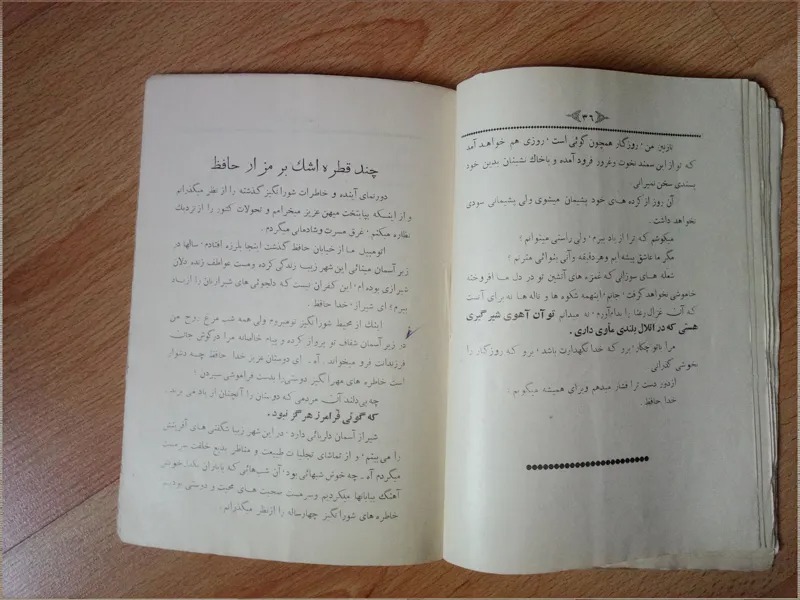 ۳۶
نازنین من، روزگار همچون گوئی است، روزی هم خواهد آمد
که تو از این سمند نخوت و غرور فرود آمده و باخاک نشینان بدین خود
پسندی سخن نمیرانی
آن روز از کرده های خود پشیمان میشوی ولی پشیمانی سودی
نخواهد داشت.
میکوشم که ترا از یاد ببرم، ولی راستی میتوانم؟
مگر ما عاشق پیشه ایم و هر دقیقه و آنی بنوائی مترنم؟
شعله های سوزانی که غمزه های آتشین تو در دل ما افروخته
خاموشی نخواهد گرفت، جانم، اینهمه شکوه ها و ناله ها نه برای آنست
که آن غزال رعنا را بدام آورم، نه میدانم تو آن آهوی شیر گیری
هستی که در اتلال بلندی مأوی داری.
مرا باتو چکار، برو که خدا نگهدارت باشد، برو که روزگار را
خوشی گذرانی
ازدور دست ترا فشار میدهم و برای همیشه میگویم.
خدا حافظ.
چند قطره اشك بر مزار حافظ
دورنمای آینده و خاطرات شورانگیز گذشته را از نظر میگذرانم
و از اینکه بپایتخت میهن عزیز میخرامم و تحولات کشور را از نزدیک
نظاره میکنم، غرق مسرت و شادمانی میگردم.
اتومبیل ما از خیابان حافظ گذشت اینجا بلرزه افتادم، سالها در
زیر آسمان مینائی این شهر زیبا زندگی کرده و مست عواطف زنده دلان
شیرازی بوده ام، این کفران نیست که دلجوئی های شیرازیان را ازیاد
ببرم؟ ای شیراز، خدا حافظ.
اینک از محیط شورانگیز تو میروم ولی همه شب مرغ روح من
در زیر آسمان شفاف تو پرواز کرده و پیام خالصانه مرا درگوش جان
فرزندانت فرو میخواند. آه.. ای دوستان عزیز خدا حافظ چه دشوار
است خاطره های مهرانگیز دوستی را بدست فراموشی سپردن؛
چه بی‌دلند آن مردمی که دوستان را آنچنان از یاد می برند...
که گوئی فرامرز هرگز نبود.
شیراز آسمان دلربائی دارد، در این شهر زیبا شگفتی های آفرینش
را می بینم، و از تماشای تجلیات طبیعت و مناظر بدیع خلقت سرمست
میگردم آه.. چه خوش شبهائی بود، آن شب‌هائی که بایاران یکدل خودش
آهنگ بیابانها میکردیم و سرمست صحبت های محبت و دوستی بودیم
خاطره های شورانگیز چهارساله را از نظر میگذرانم.